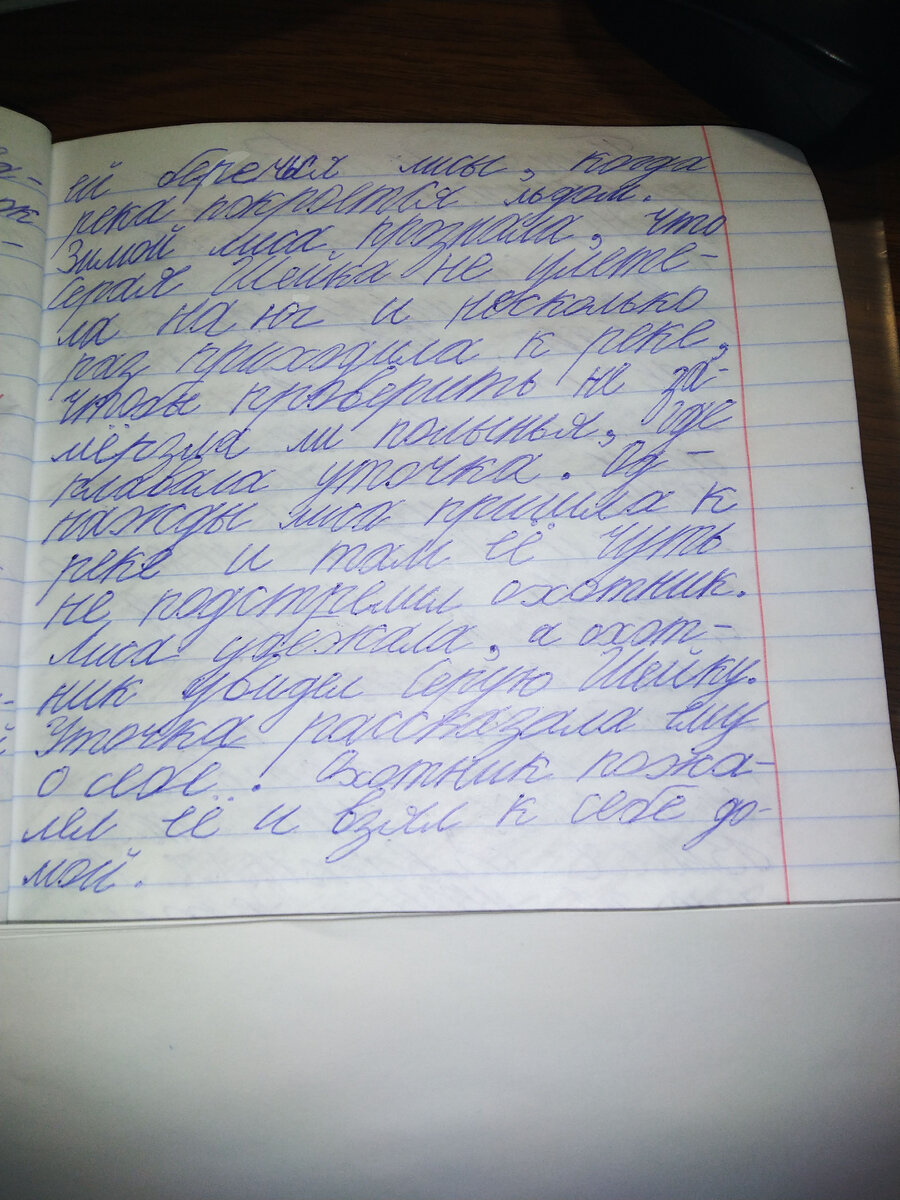 а-
ок
-
ей беречься лисы, когда
река покроется льдом.
Зимой лиса прознала, что
Серая Шейка не улете-
ла на юг и несколько
раз приходила к реке,
чтобы проверить не за-
мёрзла ли полынья, где
плавала уточка. Од-
нажды лиса пришла к
реке и там её чуть
не подстрелил охотник.
Лиса убежала, а охот-
ник увидел Серую Шейку.
Уточка рассказала ему
о себе. Охотник пожа-
лел её и взял к себе до-
мой.